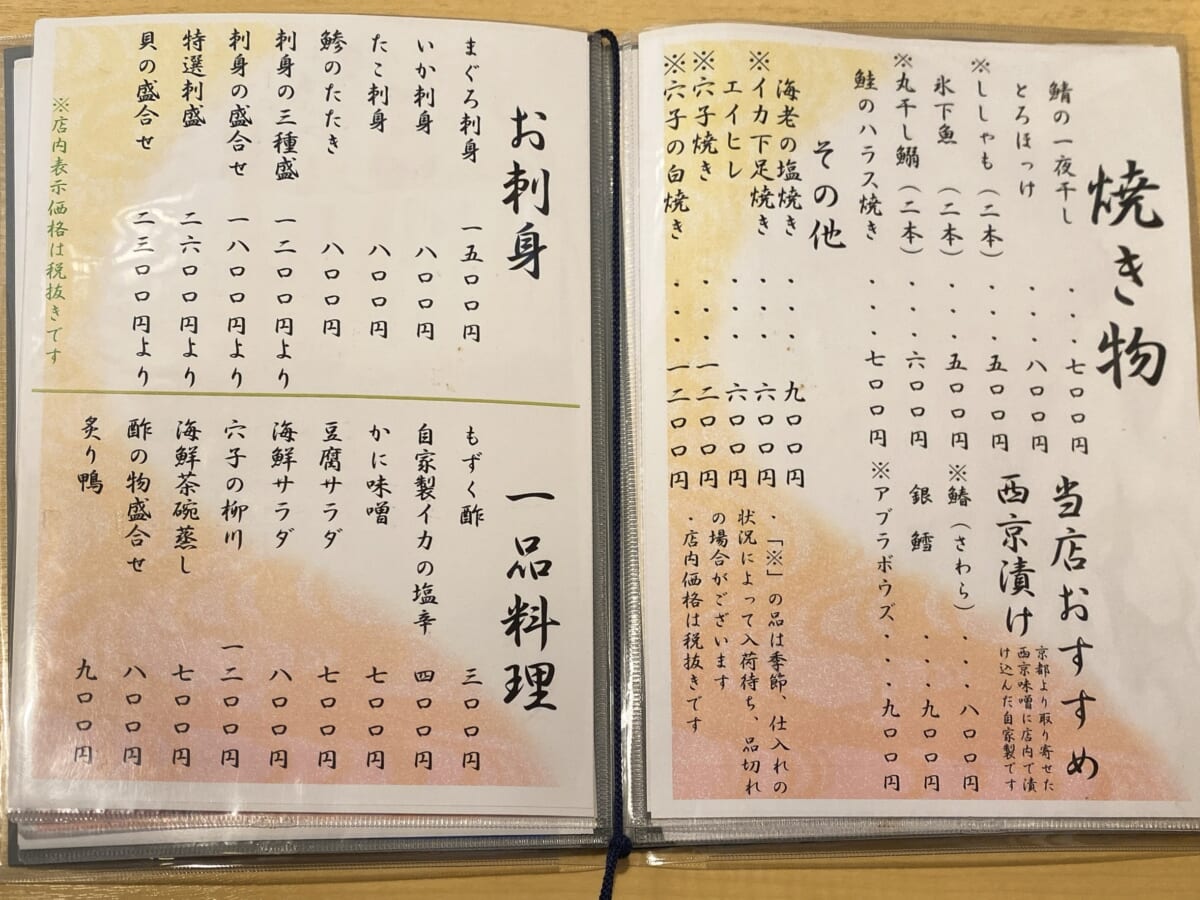 焼き物
鯖の一夜干し・・・七〇〇円
とろほっけ・・・八〇〇円
※ししゃも（二本）・・五〇〇円
氷下魚（二本）・・五〇〇円
※丸干し鰯（二本）・・六〇〇円
鮭のハラス焼き・・・七〇〇円
その他
海老の塩焼き・・・九〇〇円
※イカ下足焼き・・・六〇〇円
エイヒレ・・・六〇〇円
※穴子焼き・・・一二〇〇円
※穴子の白焼き・・・一二〇〇円
当店おすすめ
西京漬け
京都より取り寄せた
西京味噌に店内で漬
け込んだ自家製です
※鰆（さわら）・・・八〇〇円
銀鱈・・・九〇〇円
※アブラボウズ・・・九〇〇円
・「※」の品は季節、仕入れの
状況によって入荷待ち、品切れ
の場合がございます
・店内価格は税抜きです
お刺身
まぐろ刺身 一五〇〇円
いか刺身 八〇〇円
たこ刺身 八〇〇円
鯵のたたき 八〇〇円
刺身の三種盛 一二〇〇円より
刺身の盛合せ 一八〇〇円より
特選刺盛 二六〇〇円より
貝の盛合せ 二三〇〇円より
※店内表示価格は税抜きです
一品料理
もずく酢 三〇〇円
自家製イカの塩辛 四〇〇円
かに味噌 七〇〇円
豆腐サラダ 七〇〇円
海鮮サラダ 八〇〇円
穴子の柳川 一二〇〇円
海鮮茶碗蒸し 七〇〇円
酢の物盛合せ 八〇〇円
炙り鴨 九〇〇円